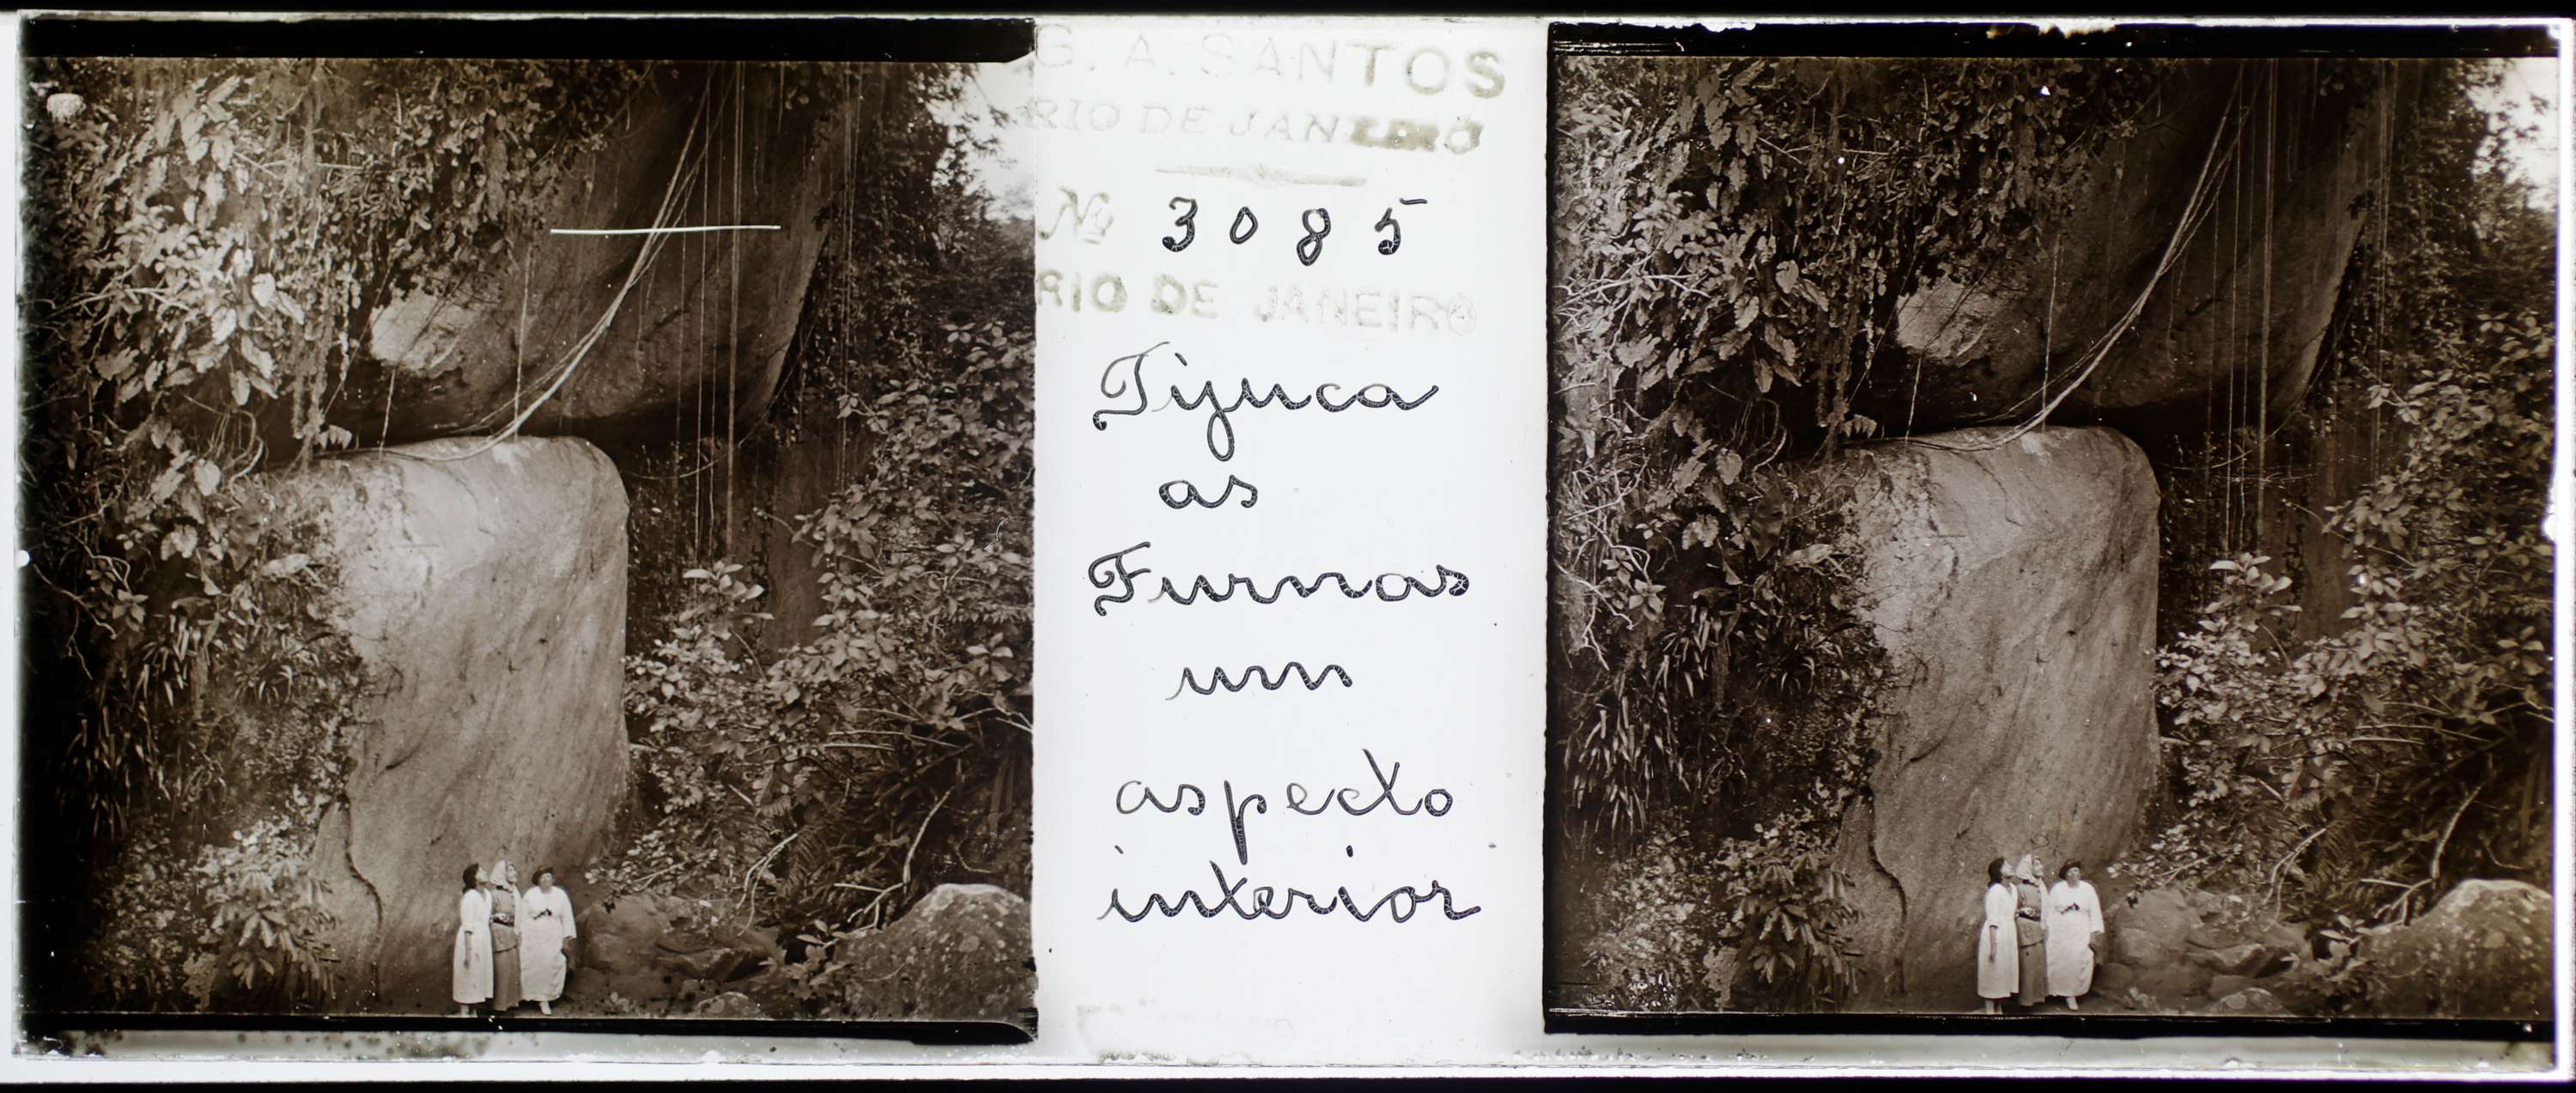 G. A. SANTOS
RIO DE JANEIRO
No 3085
RIO DE JANEIRO
Tijuca
as
Furnas
um
aspecto
interior